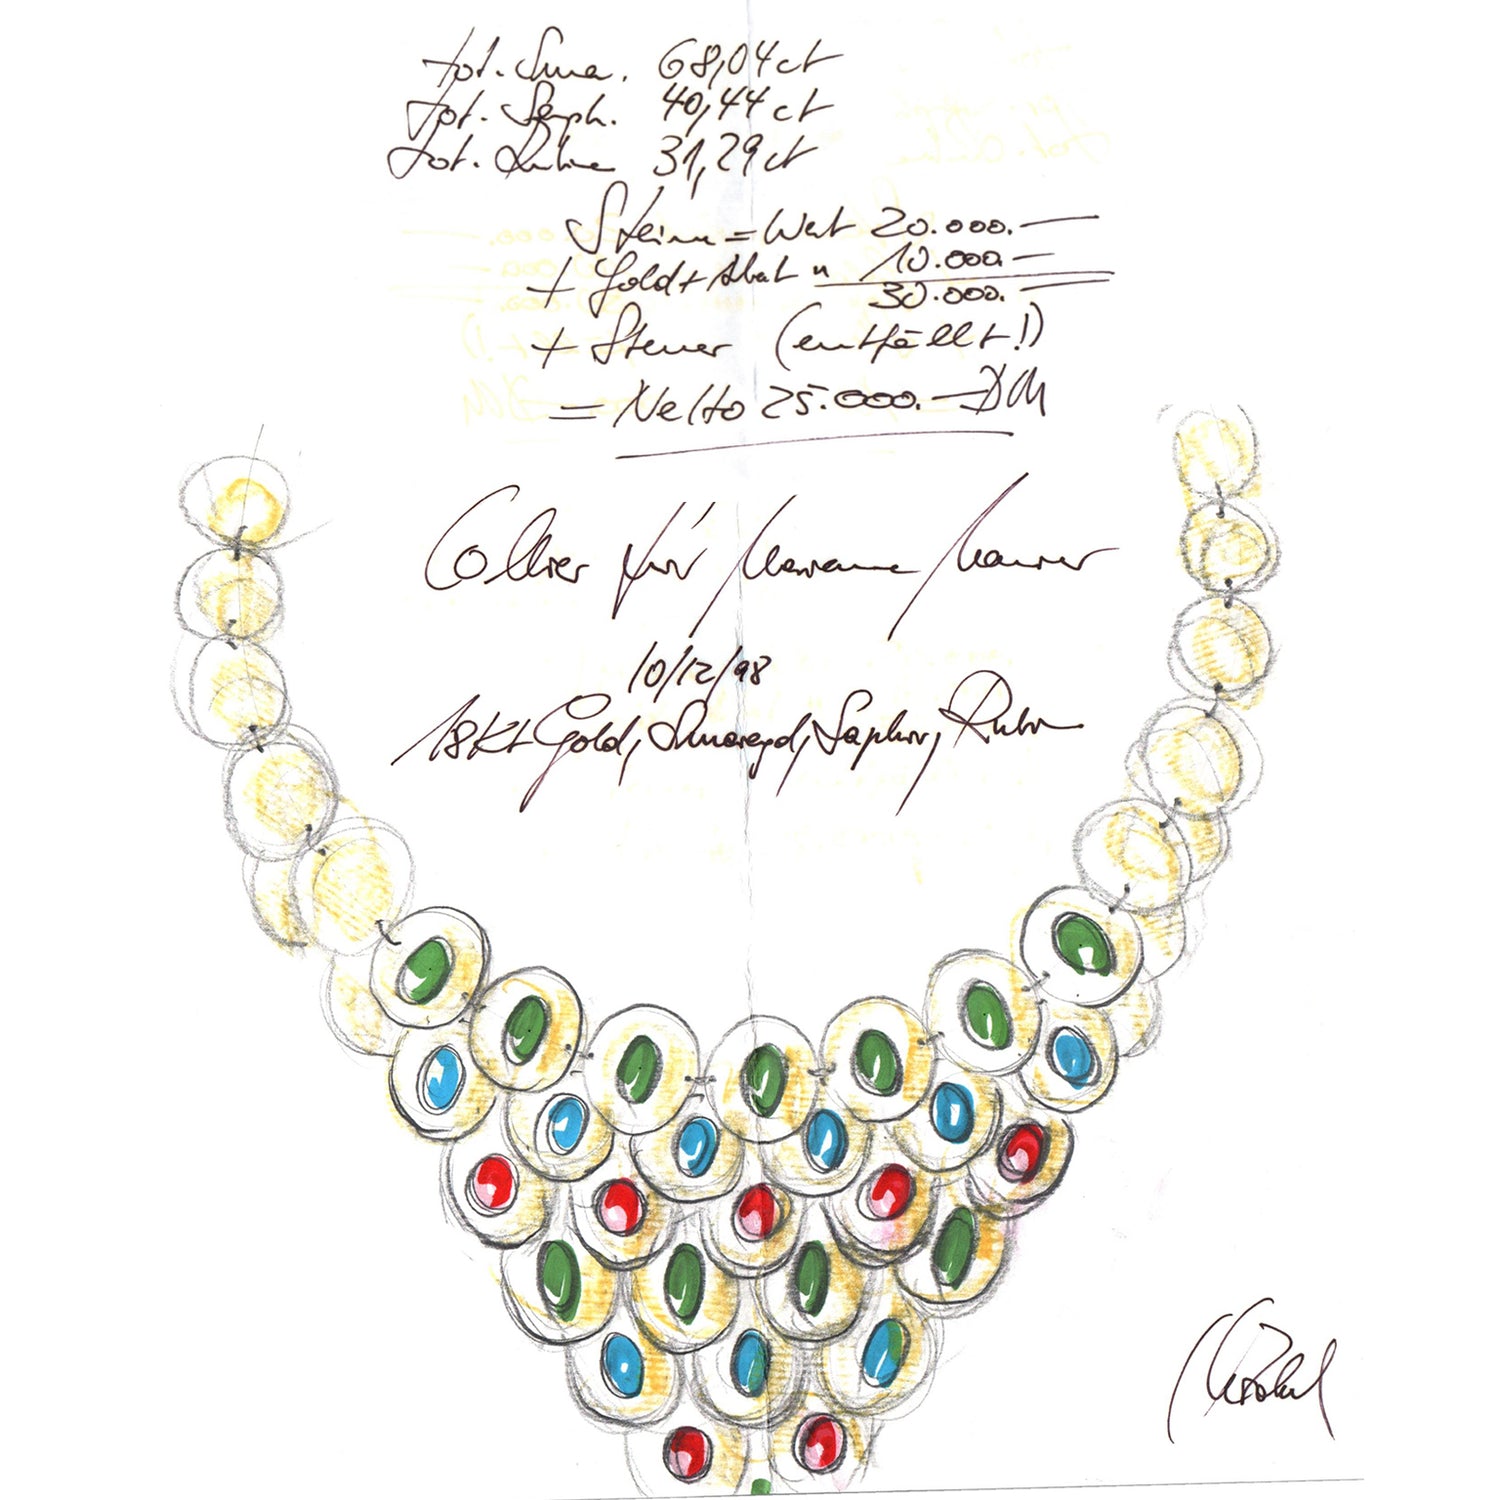 tot. Sma. 68,04 ct
tot. Saph. 40,44 ct
tot. Rubine 31,29 ct
Steine = Wert 20.000.—
+ Gold + Arbeit " 10.000.—
30.000.—
+ Steuer (entfällt!)
= Netto 25.000.— DM
Collier für Marianne Maurer
10/12/98
18 Kt Gold, Smaragd, Saphir, Rubin